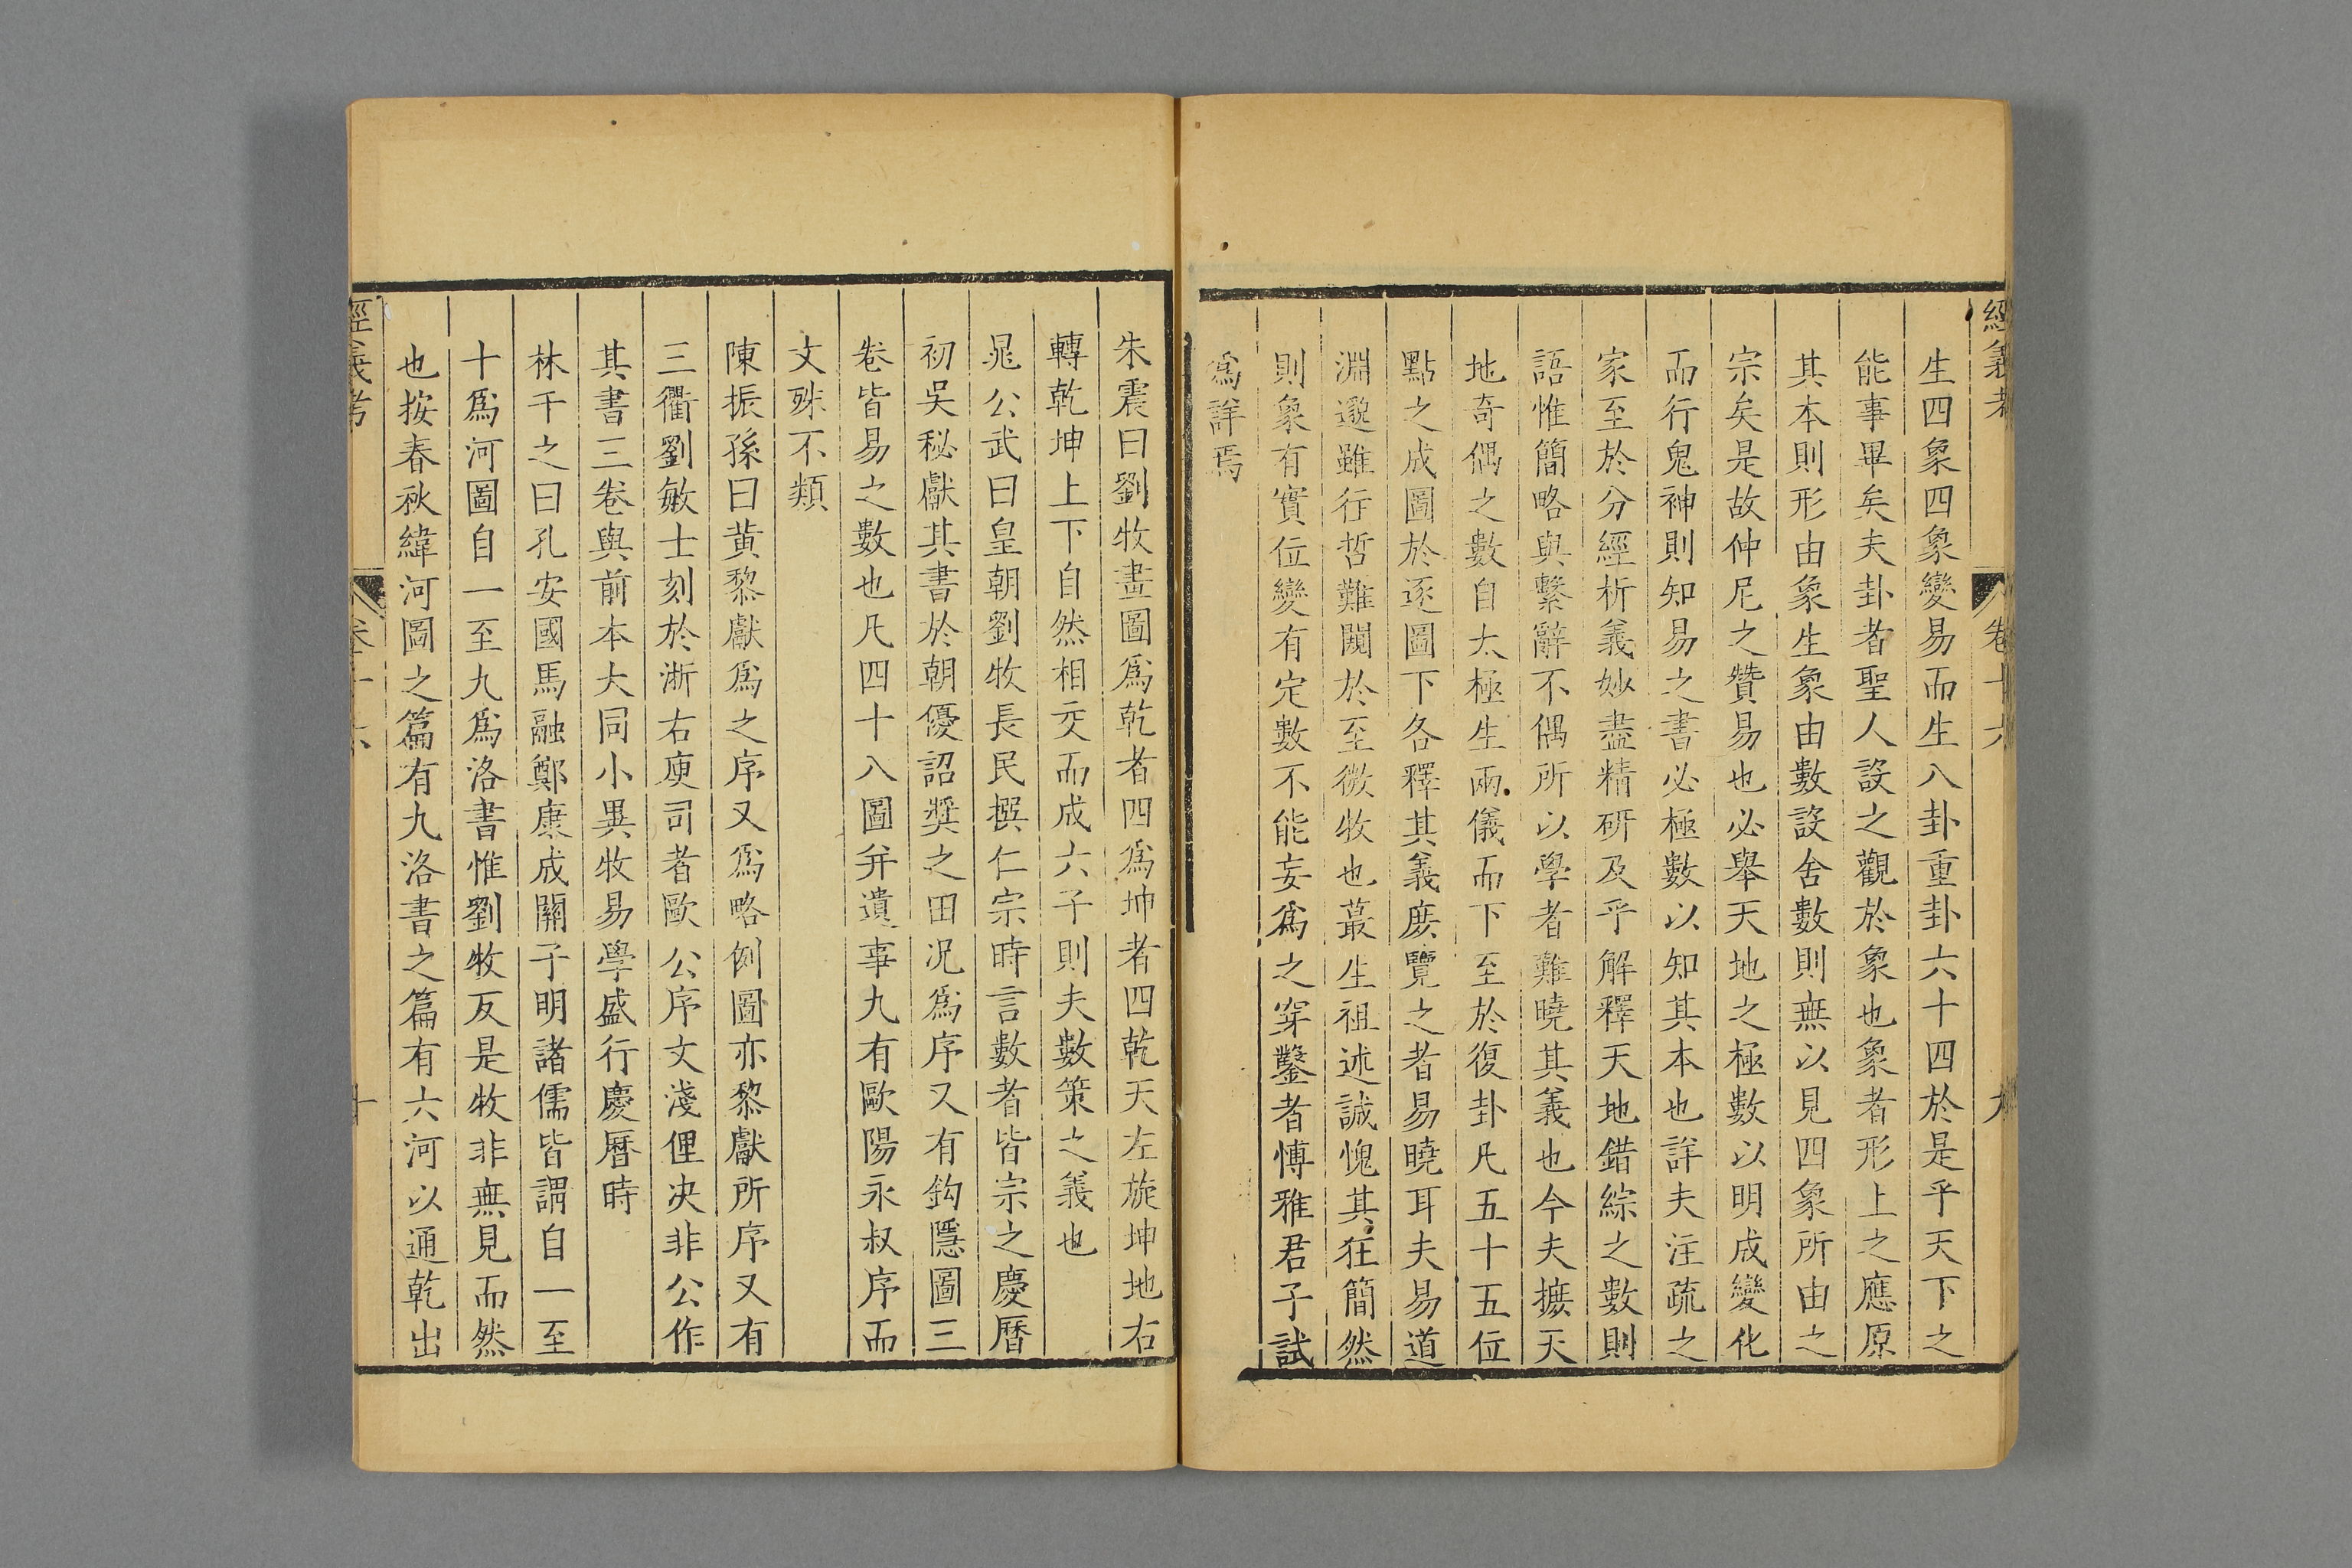 經義考
卷十六
九
生四象四象變易而生八卦重卦六十四於是乎天下之
能事畢矣夫卦者聖人設之觀於象也象者形上之應原
其本則形由象生象由數設舍數則無以見四象所由之
宗矣是故仲尼之贊易也必舉天地之極數以明成變化
而行鬼神則知易之書必極數以知其本也詳夫注疏之
家至於分經析義妙盡精研及乎解釋天地錯綜之數則
語惟簡略與繫辭不偶所以學者難曉其義也今夫摭天
地奇偶之數自太極生兩儀而下至於復卦凡五十五位
點之成圖於逐圖下各釋其義庶覽之者易曉耳夫易道
淵邈雖行哲難闚於至微牧也蕞生祖述誠愧其狂簡然
則象有實位變有定數不能妄為之穿鑿者博雅君子試
為詳焉
朱震曰劉牧畫圖為乾者四為坤者四乾天左旋坤地右
轉乾坤上下自然相交而成六子則夫數策之義也
晁公武曰皇朝劉牧長民撰仁宗時言數者皆宗之慶曆
初吳秘獻其書於朝優詔獎之田况為序又有鈎隱圖三
卷皆易之數也凡四十八圖并遺事九有歐陽永叔序而
文殊不類
陳振孫曰黃黎獻為之序又為略例圖亦黎獻所序又有
三衢劉敏士刻於浙右庾司者歐公序文淺俚决非公作
其書三卷與前本大同小異牧易學盛行慶曆時
林千之曰孔安國馬融鄭康成關子明諸儒皆謂自一至
十為河圖自一至九為洛書惟劉牧反是牧非無見而然
也按春秋緯河圖之篇有九洛書之篇有六河以通乾出
經義考
卷十六
十